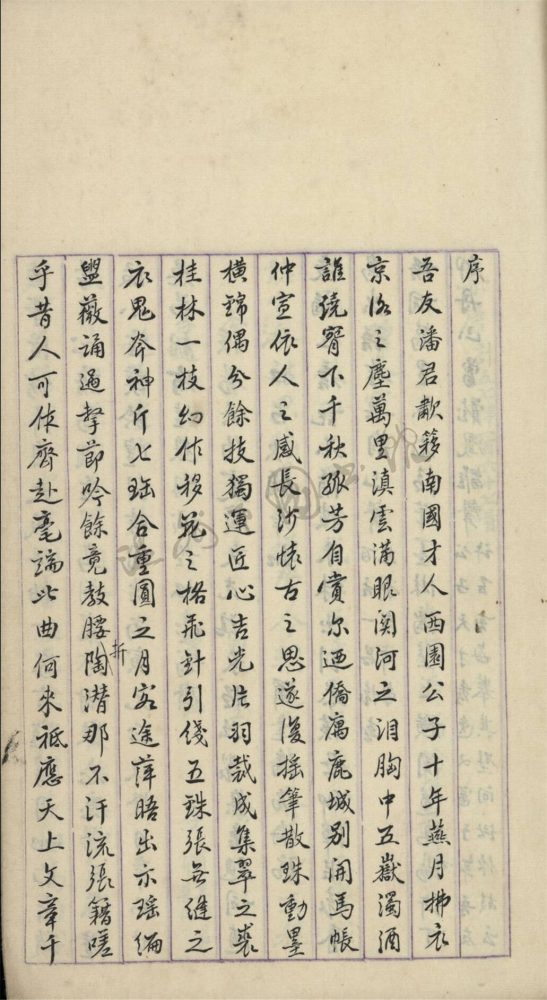 序
吾友潘君歗簃南國才人西園公子十年燕月拂衣
京洛之塵萬里滇雲滿眼関河之泪胸中五嶽濁酒
誰澆下千秋孤芳自賞尔迺僑寓鹿城別開馬帳
仲宣依人之感長沙懷古之思遂復搖筆散珠動墨
橫錦偶分餘技獨運匠心吉光片羽裁成集翠之裘
桂林一枝幻作移花之格飛針引綫五銖張無縫之
衣鬼斧神斤七瑤合重圓之月客途萍晤出示瑤編
盥薇誦過擊節吟餘竟教腰折陶潛那不汗流張籍嗟
乎昔人可作齊赴毫端此曲何來祗應天上文章千